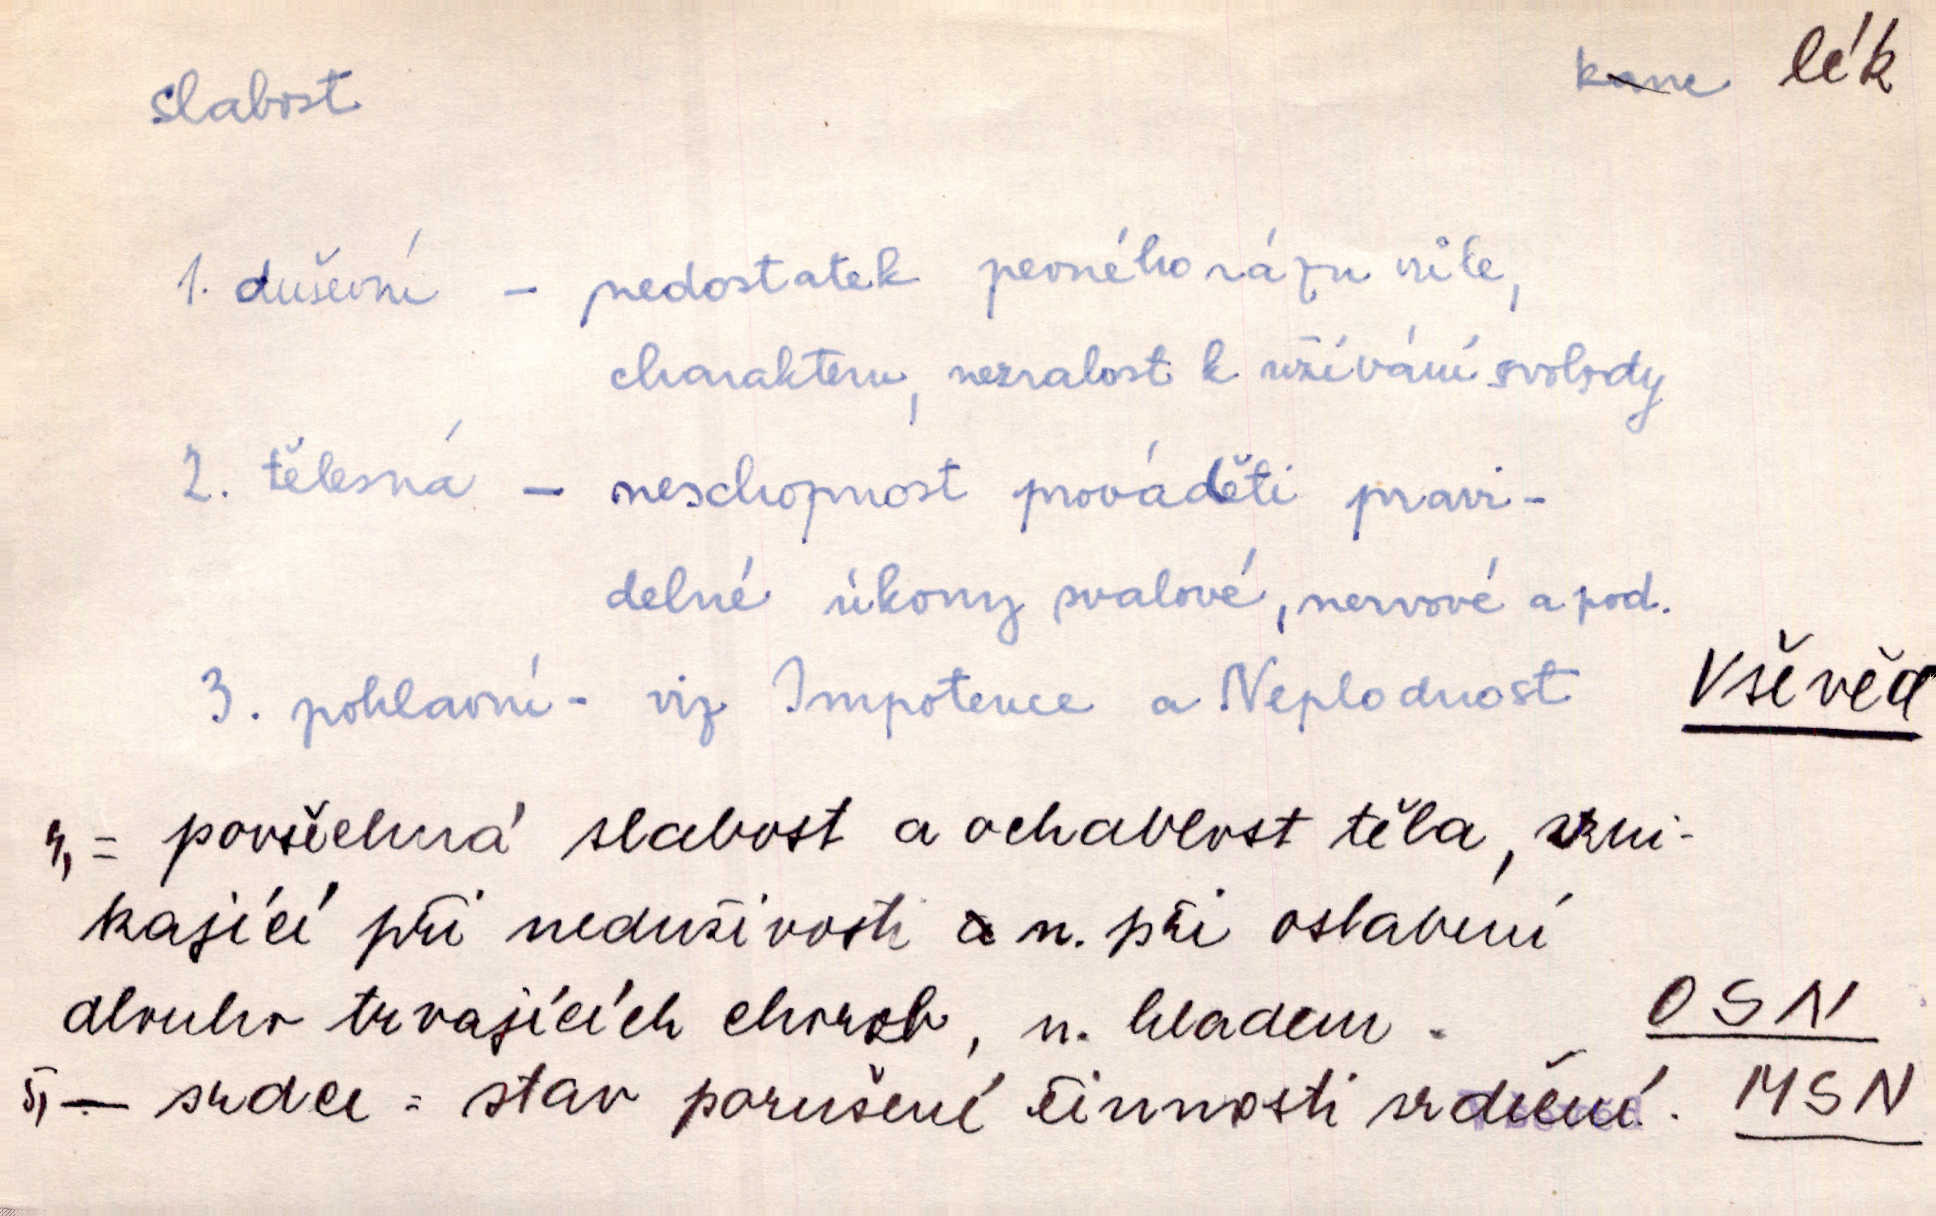 slabost lék
1. duševní - nedostatek pevného rázu vůle,
charakteru, nezralost k užívání svobody
2. tělesná - neschopnost prováděti pravi-
delné úkony svalové, nervové a pod.
3. pohlavní - viz Impotence a Neplodnost Vševěd
4, = povšechná slabost a ochablost těla, vzni-
kající při neduživosti a n. při oslabení
dlouho trvajících chorob, n. hladem. OSN
5, - srdce = stav porušené činnosti srdeční. MSN